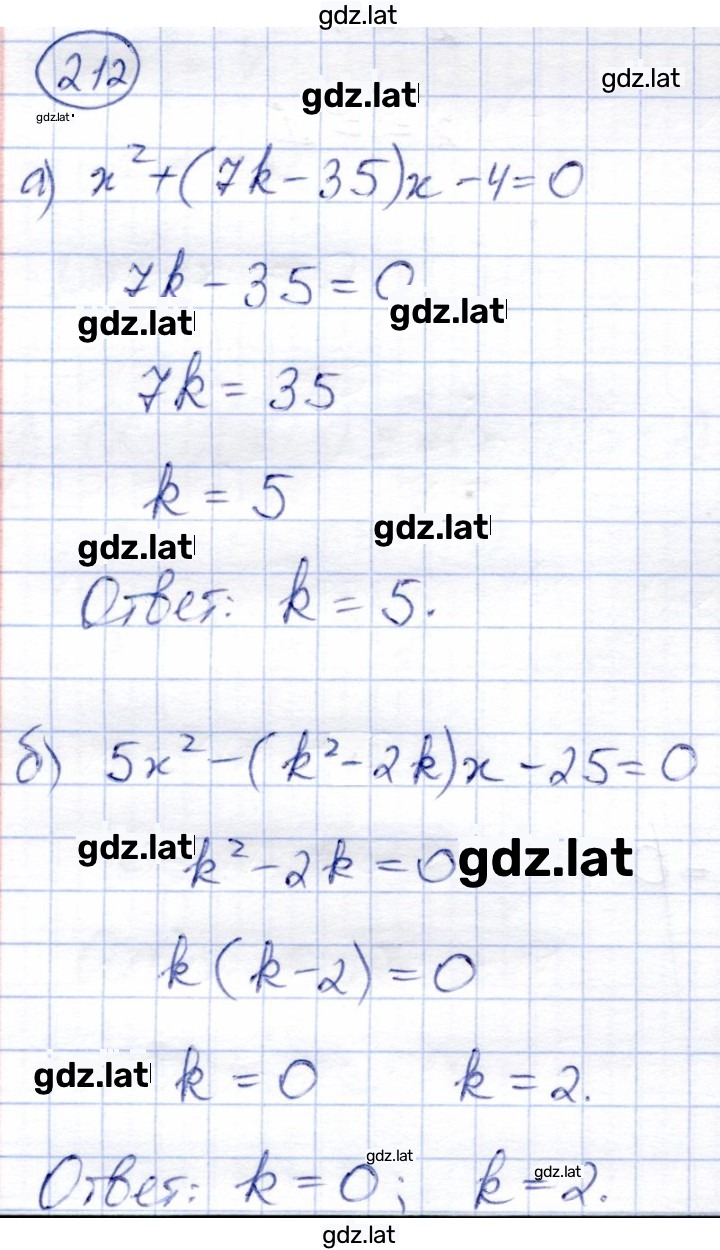 gdz.lat
212
gdz.lat
gdz.lat
gdz.lat
а) x²+(7k-35)x-4=0
7k-35=0
gdz.lat
gdz.lat
7k=35
k=5
gdz.lat
gdz.lat
Ответ: k=5.
б) 5x²-(k²-2k)x-25=0
gdz.lat
k²-2k=0
gdz.lat
k(k-2)=0
gdz.lat
k=0 k=2.
gdz.lat
gdz.lat
Ответ: k=0; k=2.
gdz.lat